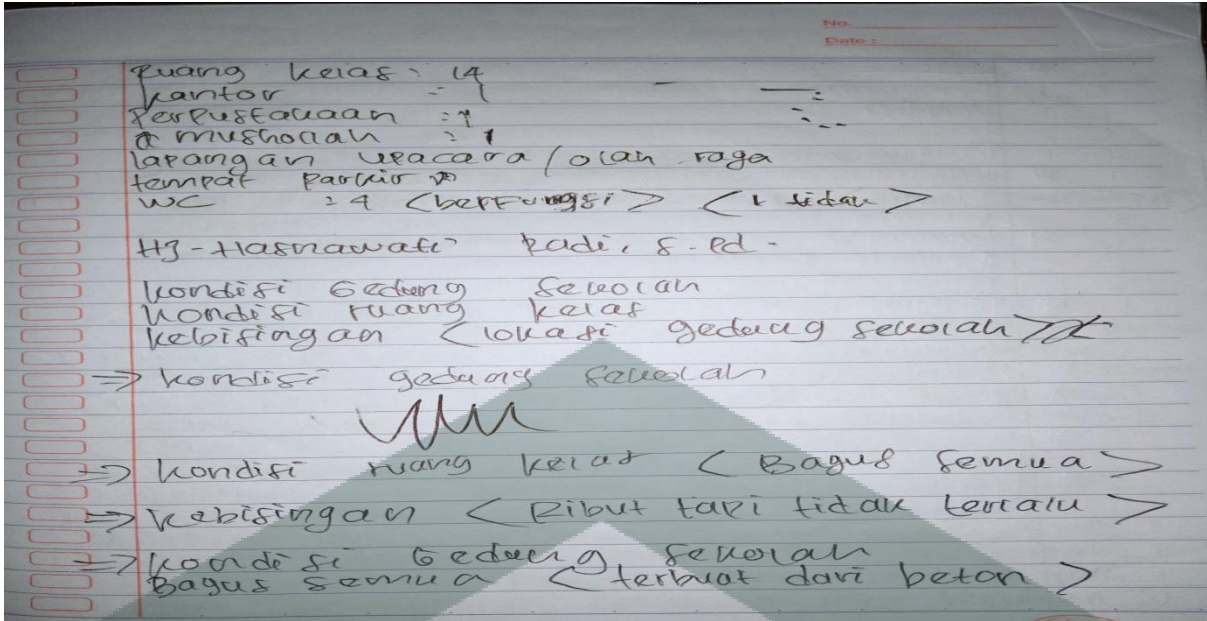 No.
Date :
Ruang kelas : 14
kantor : 1
Perpustakaan : 1
mushollah : 1
lapangan upacara / olah raga
tempat parkir
WC : 4 < berfungsi > < 1 tidak >
HJ - Hasnawati Radi, S. Pd -
kondisi Gedung Sekolah
kondisi ruang kelas
kebisingan < lokasi gedung sekolah >
⇒ kondisi gedung sekolah
⇒ kondisi ruang kelas < Bagus semua >
⇒ kebisingan < Ribut tapi tidak terlalu >
⇒ kondisi Gedung Sekolah
Bagus semua < terbuat dari beton >